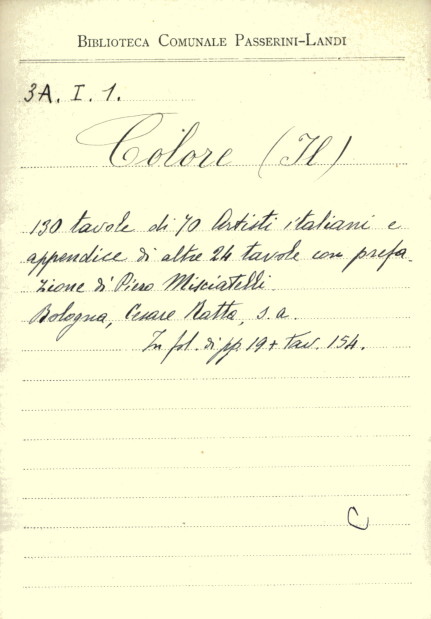 BIBLIOTECA COMUNALE PASSERINI-LANDI
3A. I. 1.
Colore (Il)
130 tavole di 70 Artisti italiani e
appendice di altre 24 tavole con prefa-
zione di Piero Misciatelli.
Bologna, Cesare Ratta, s. a.
In fol. di pp. 19 + tav. 154.
C